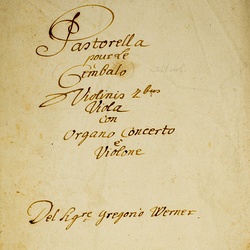 Pastorella
pour le
Cimbalo
Violinis 2bus
Viola
con
Organo Concerto
è
Violone
Del Sigre Gregorio Werner.